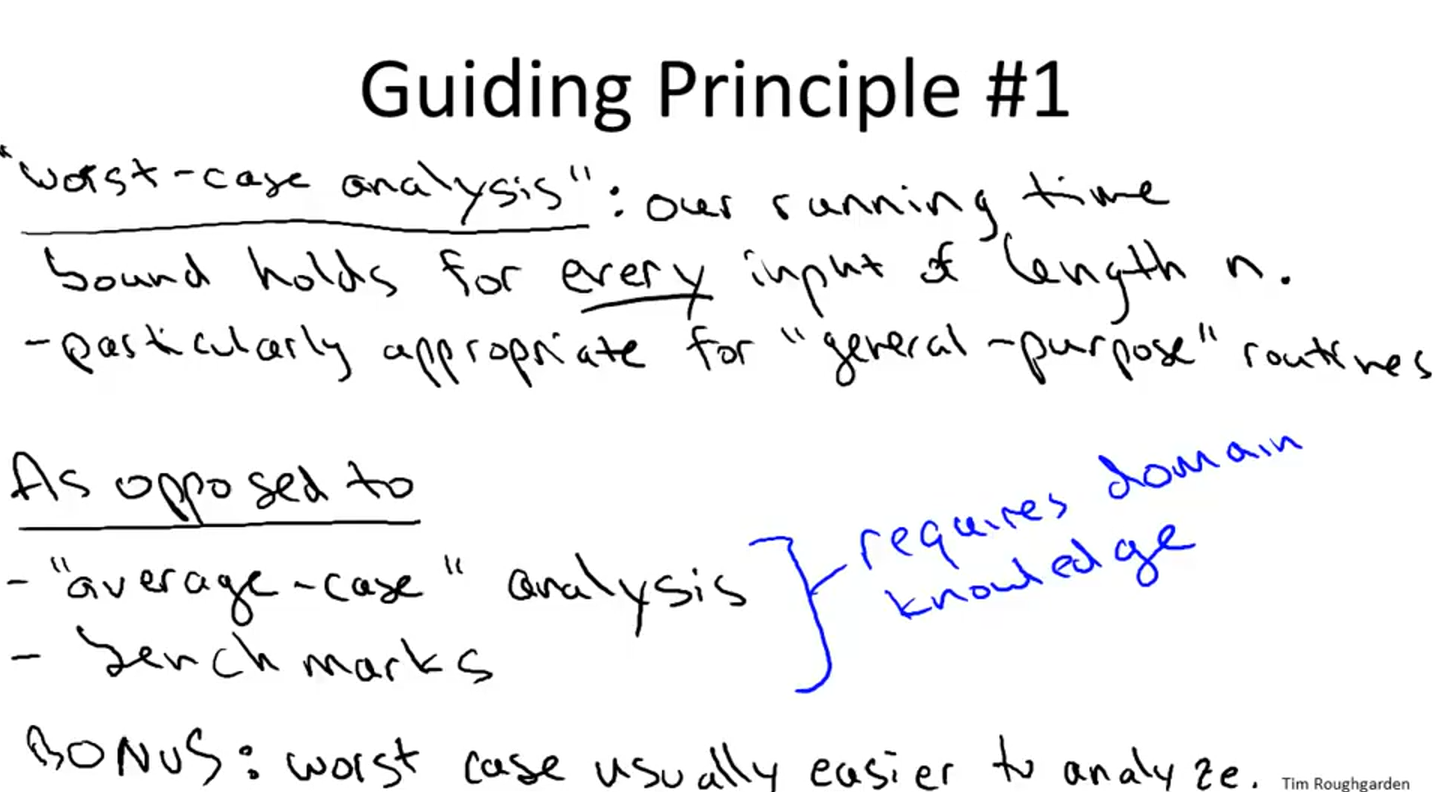 Guiding Principle #1
"worst-case analysis": our running time
bound holds for every input of length n.
- particularly appropriate for "general-purpose" routines
As opposed to
- "average-case" analysis
- benchmarks
requires domain
knowledge
BONUS: worst case usually easier to analyze.
Tim Roughgarden